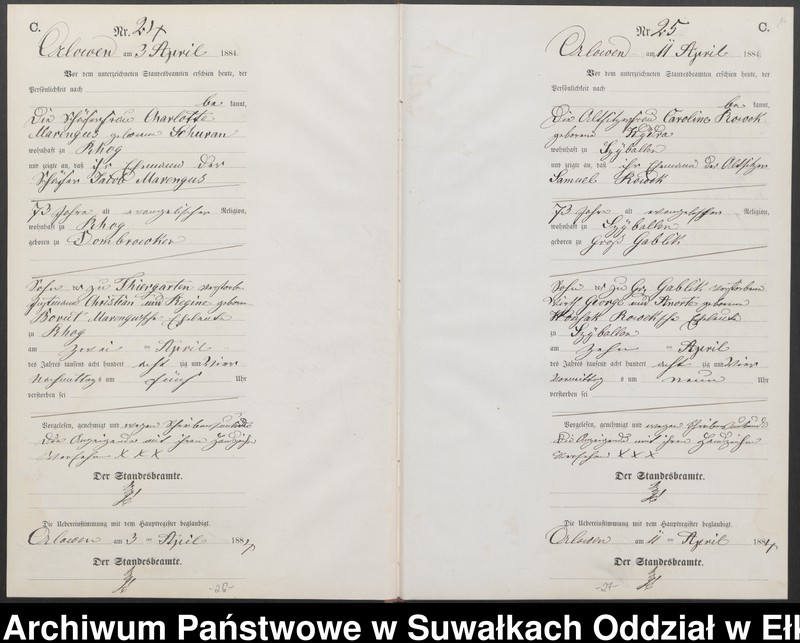 C.
Nr. 24
Orlowen am 3 April 1884.
Vor dem unterzeichneten Standesbeamten erschien heute, der
Persönlichkeit nach
be kannt,
die Schäferfrau Charlotte
Marengus geborene Schuran
wohnhaft zu Rhog
und zeigte an, daß ihr Ehemann der
Schäfer Jacob Marengus
73 Jahre alt evangelischer Religion,
wohnhaft zu Rhog
geboren zu Dombrowken
Sohn der zu Thiergarten verstorbenen
Christian und Regine geborene
Borut Marengusschen Eheleute
zu Rhog
am zwei ten April
des Jahres tausend acht hundert acht zig und vier
Nachmittags um fünf Uhr
verstorben sei
Vorgelesen, genehmigt und wegen Schreibensunkunde
die Anzeigende mit ihrem Handzeichen
versehen X X X
Der Standesbeamte.
Die Uebereinstimmung mit dem Hauptregister beglaubigt.
Orlowen am 3 ten April 1884
Der Standesbeamte.
-26-
C.
Nr. 25
Orlowen am 11 April 1884
Vor dem unterzeichneten Standesbeamten erschien heute, der
Persönlichkeit nach
be kannt,
die Altsitzerfrau Caroline Rowek
geborene
wohnhaft zu Szÿballen
und zeigte an, daß ihr Ehemann der Altsitzer
Samuel Rowek
73 Jahre alt evangelischer Religion,
wohnhaft zu Szÿballen
geboren zu Groß Gablick
Sohn der zu Groß Gablick verstorbenen
Wirth George und Anorte geborene
Rowekschen Eheleute
zu Szÿballen
am zehn ten April
des Jahres tausend acht hundert acht zig und vier
Vormittag s um neun Uhr
verstorben sei
Vorgelesen, genehmigt und wegen Schreibensunkunde
die Anzeigende mit ihrem Handzeichen
versehen X X X
Der Standesbeamte.
Die Uebereinstimmung mit dem Hauptregister beglaubigt.
Orlowen am 11 ten April 1884
Der Standesbeamte.
-27-
Archiwum Państwowe w Suwałkach Oddział w Eł